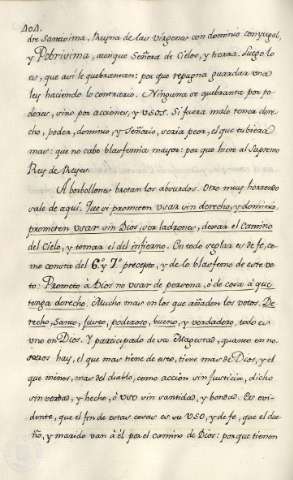 404.
dre Santissima, Reyna de las Virgenes con dominio conyugal,
y Pobrisima, aunque Señora de Cielos, y tierra. Luego lo
es, que assi le quebrantan: por que repugna guardar una
ley haciendo lo contrario. Ninguna se quebranta por po-
deres, sino por acciones, y usos. Si fuera malo tener dere
cho, poder, dominio, y Señorio, seria peor, el que tubiera
mas: que no cabe blasfemia mayor: por que hiere al Supremo
Rey de Reyes.
A borbollones brotan los absurdos. Otro muy horrendo
sale de aqui. Que si prometen usar sin derecho, y dominio,
prometen usar sin Dios, ser ladrones, dexar el Camino
del Cielo, y tomar el del infierno. En todo regla es de fe, co-
mo consta del 6.º y 7.º precepto, y de lo blasfemo de este vo-
to: Prometo à Dios no usar de persona, ò de cosa à que
tenga derecho. Mucho mas en los que añaden los votos. De
recho, Santo, justo, poderoso, bueno, y verdadero, todo es
uno en Dios. Y participado de su Magestad, quanto en no-
sotros hay, el que mas tiene de esto, tiene mas de Dios, y el
que menos, mas del diablo, como accion sin Justicia, dicho
sin verdad, y hecho, ò uso sin santidad, y bondad. Es evi-
dente, que el fin de estas cosas es su uso, y de fe, que el due-
ño, y marido van à èl por el camino de Dios: porque tienen